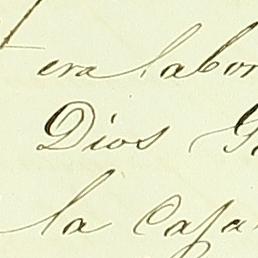 era labor
Dios G
la Casa